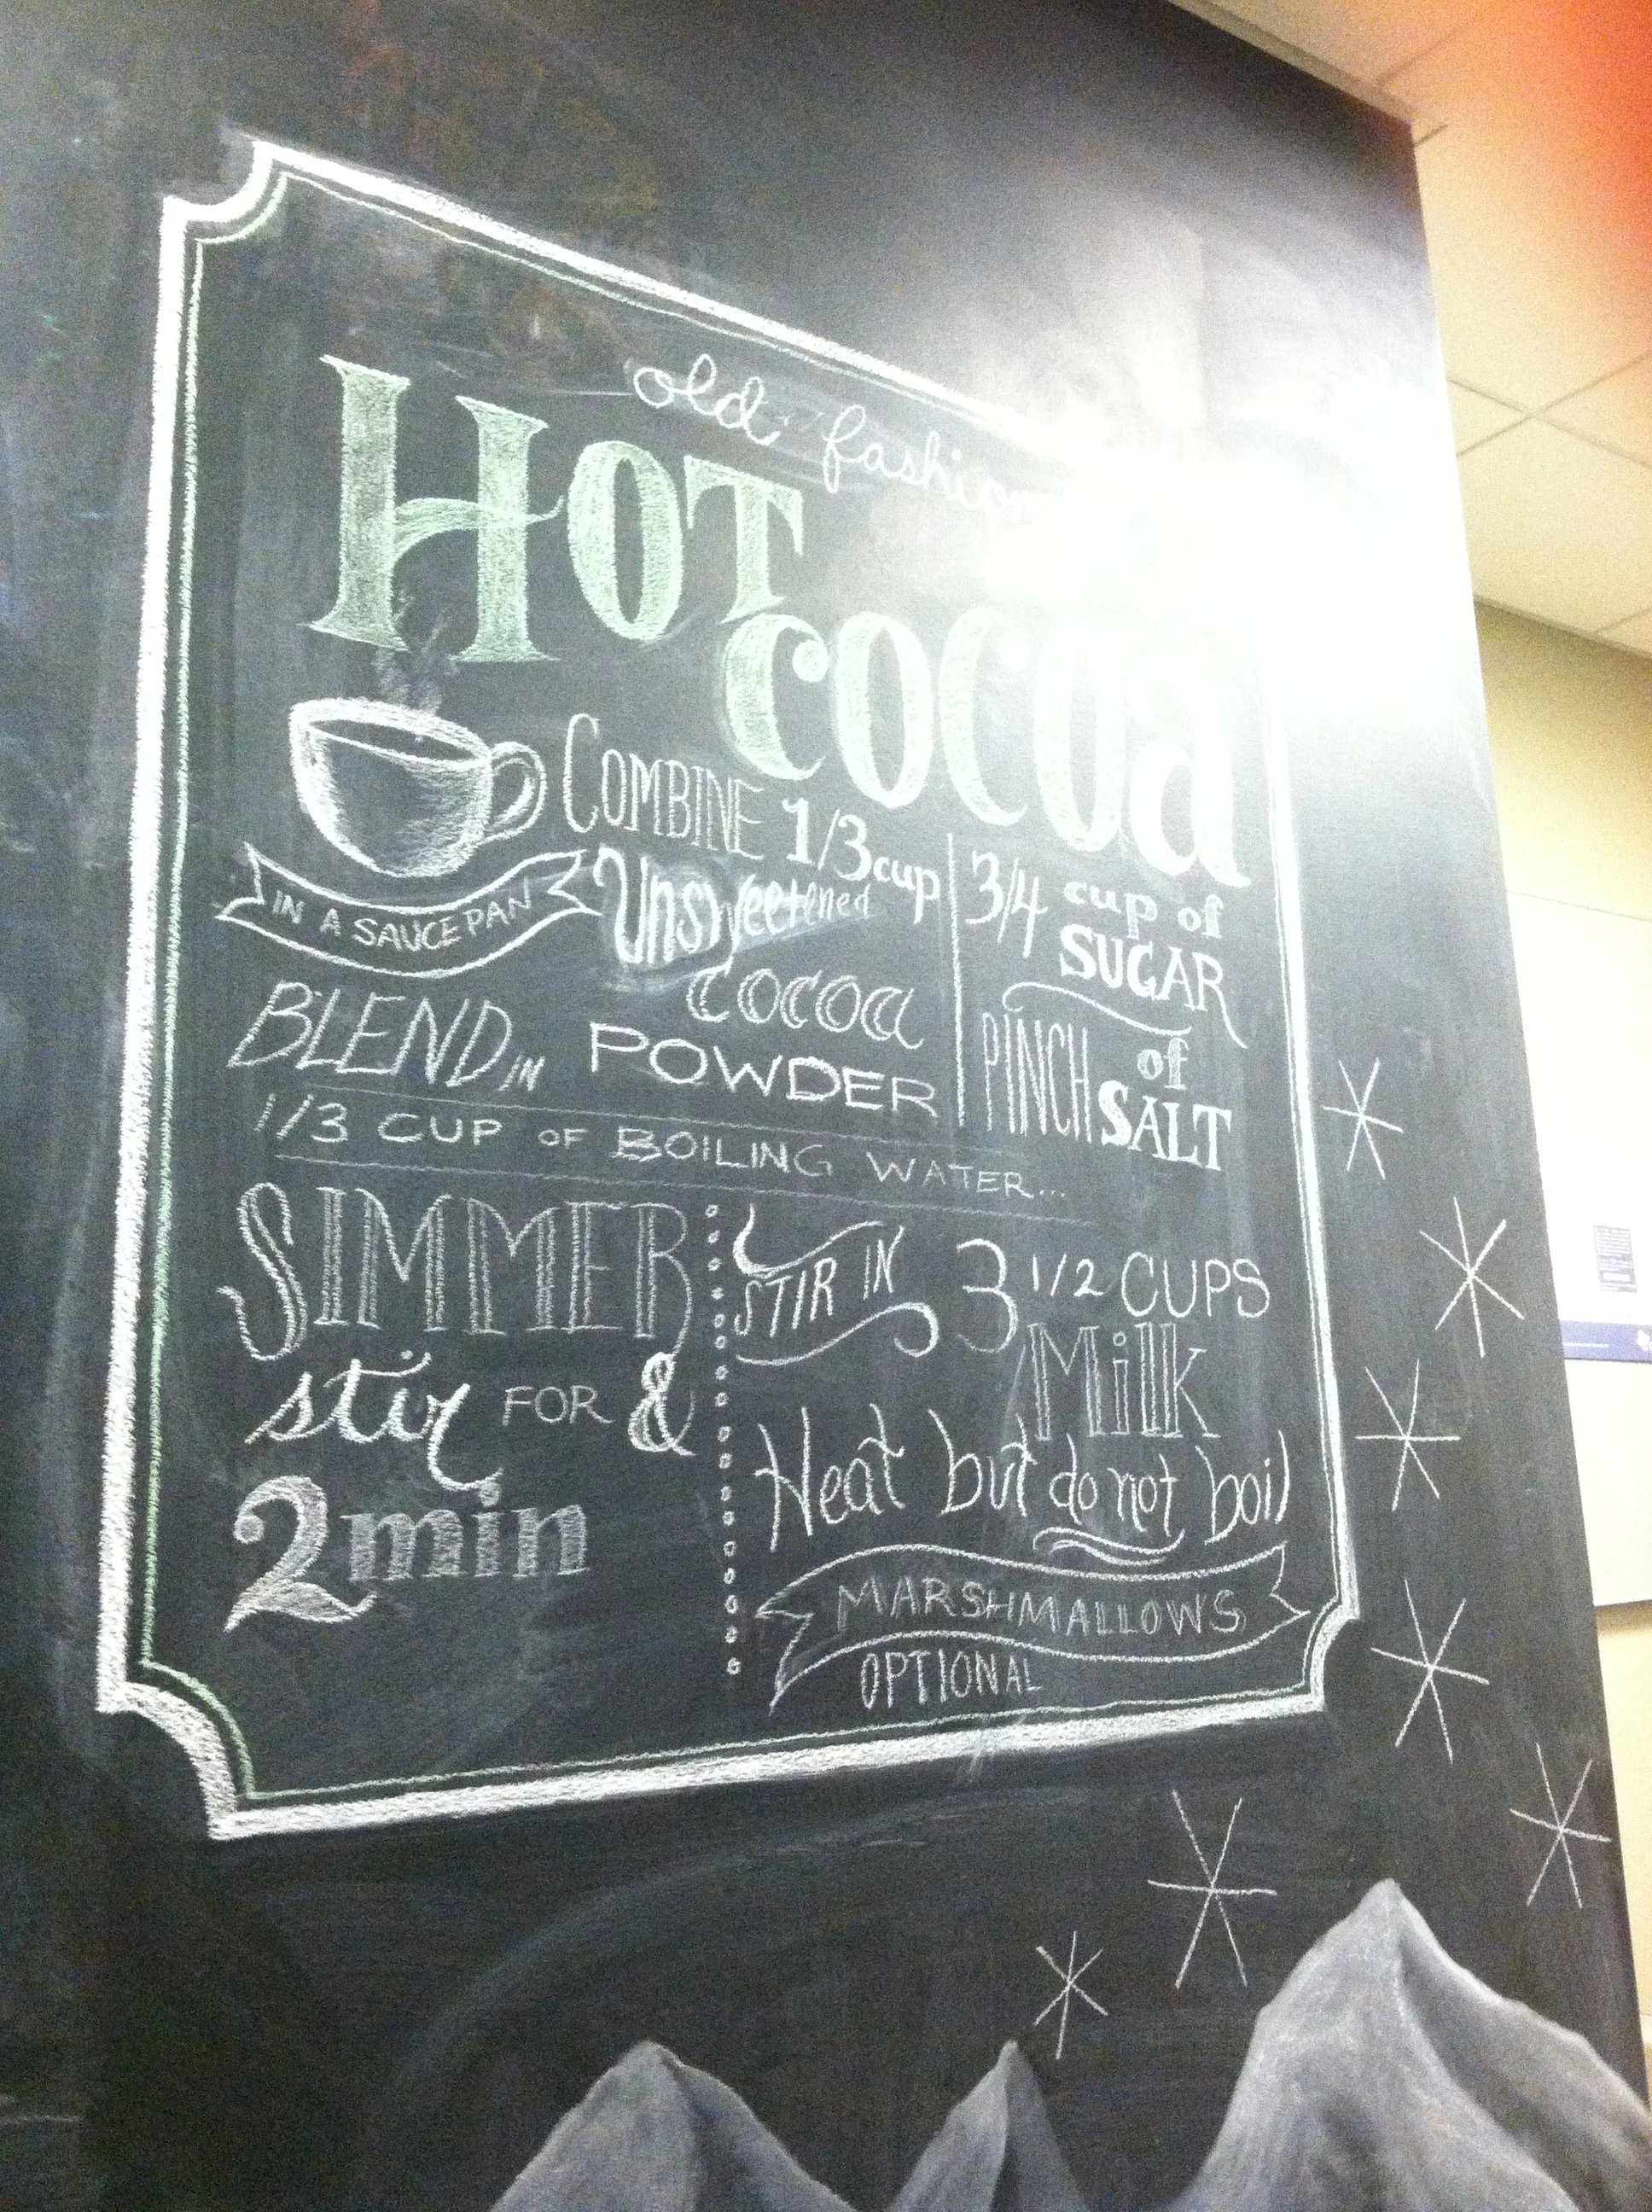 old fashion
HOT
COCOa
COMBINE 1/3 cup
Unsweetened
cocoa
POWDER
3/4 cup of
SUGAR
PINCH of
SALT
IN A SAUCEPAN
BLEND IN
1/3 CUP OF BOILING WATER...
SIMMER
&
stir FOR
2 min
STIR IN 3 1/2 CUPS
Milk
Heat but do not boil
MARSHMALLOWS
OPTIONAL